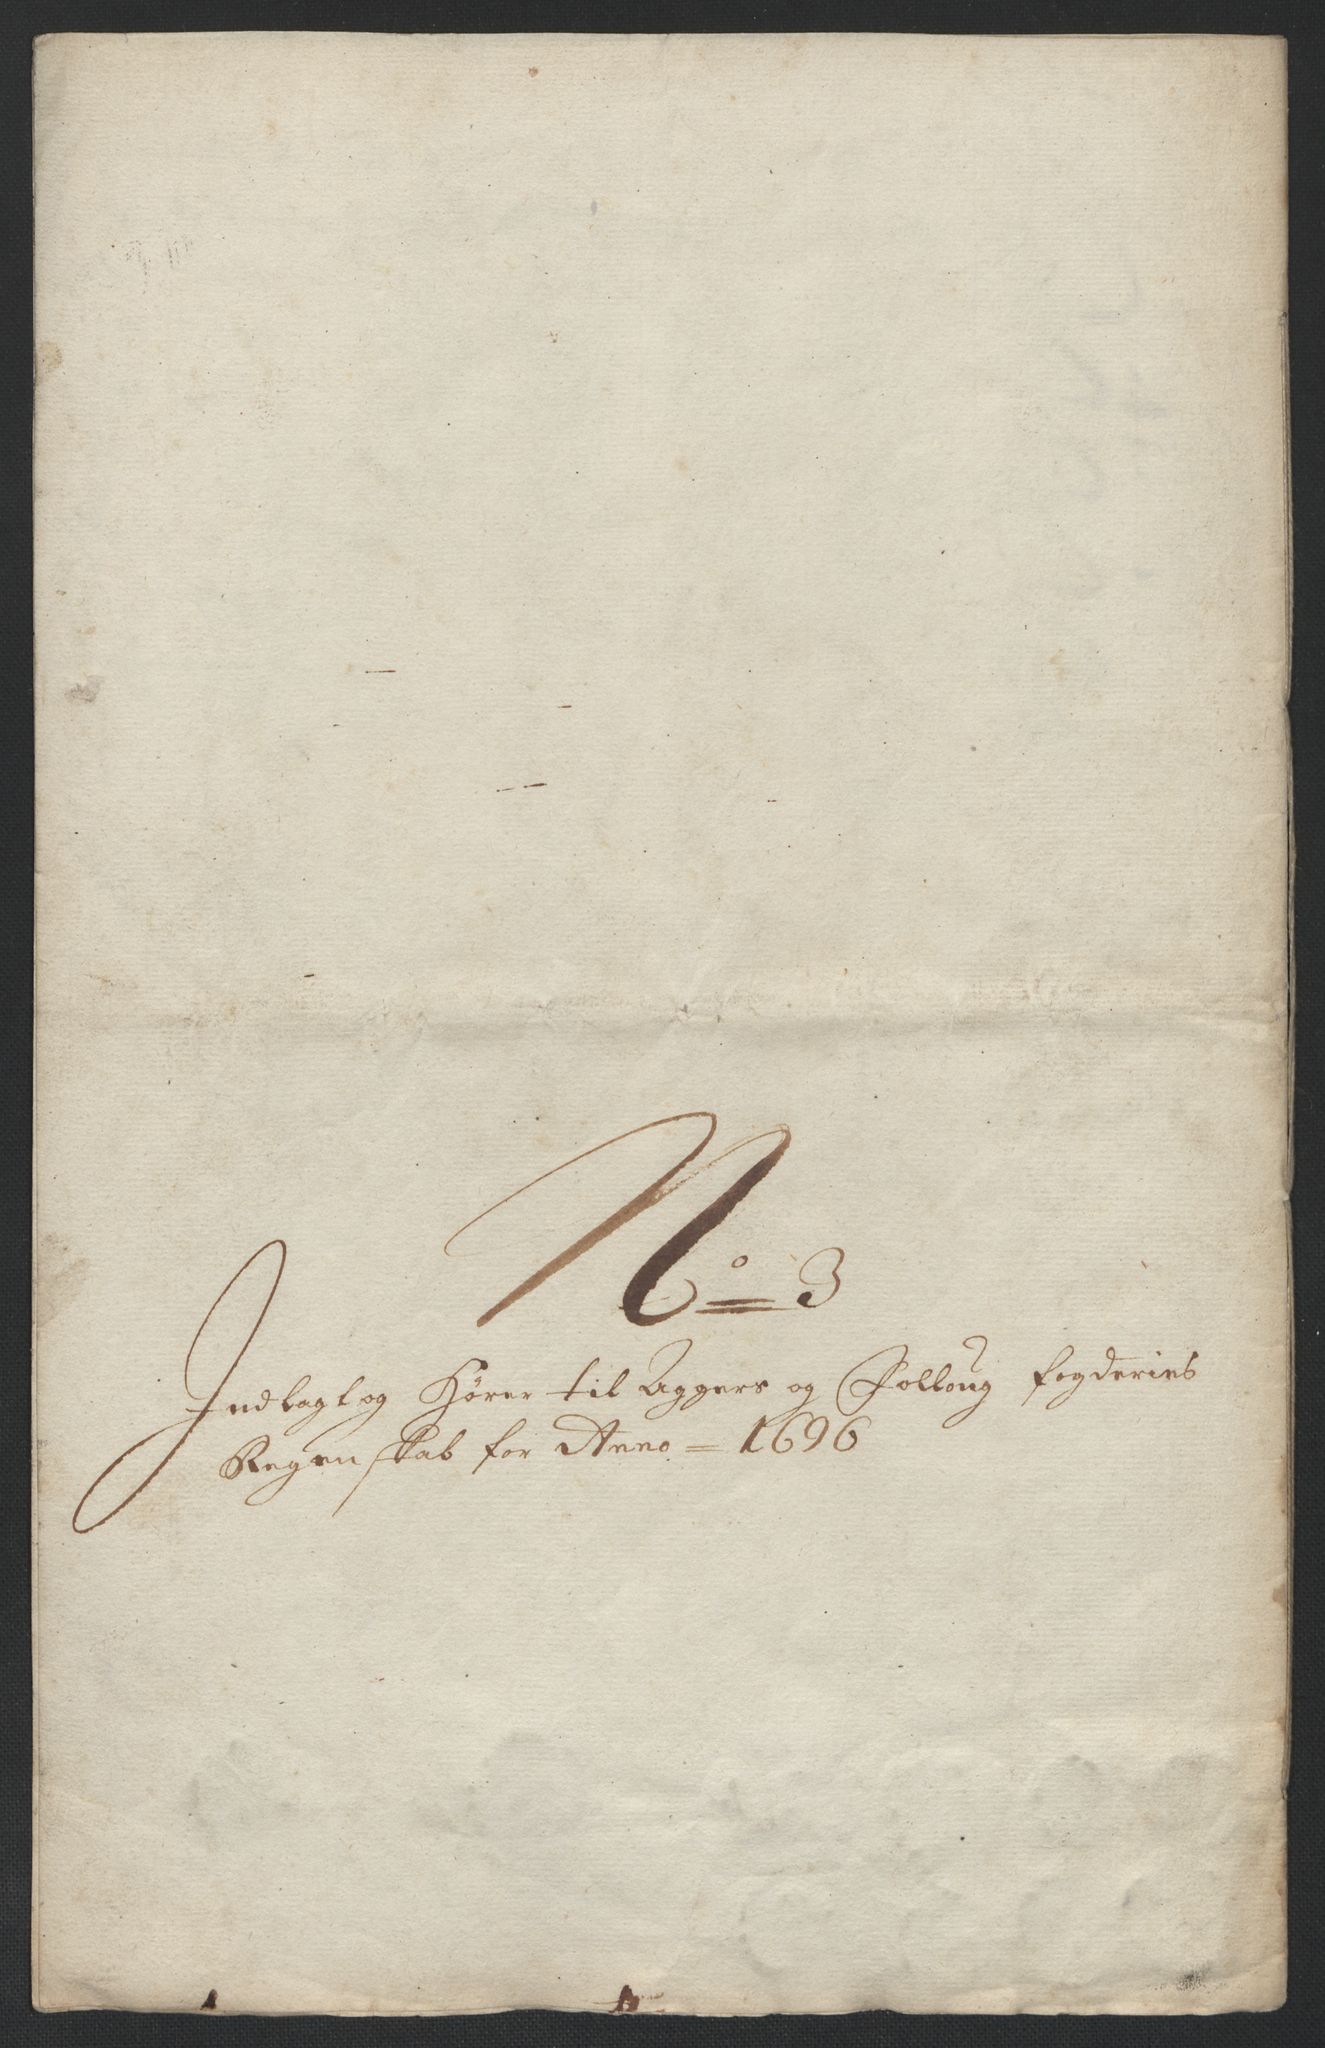 No 3
Indlagt og Hører til Aggers og Folloug fogderies
Regenskab for Anno = 1696